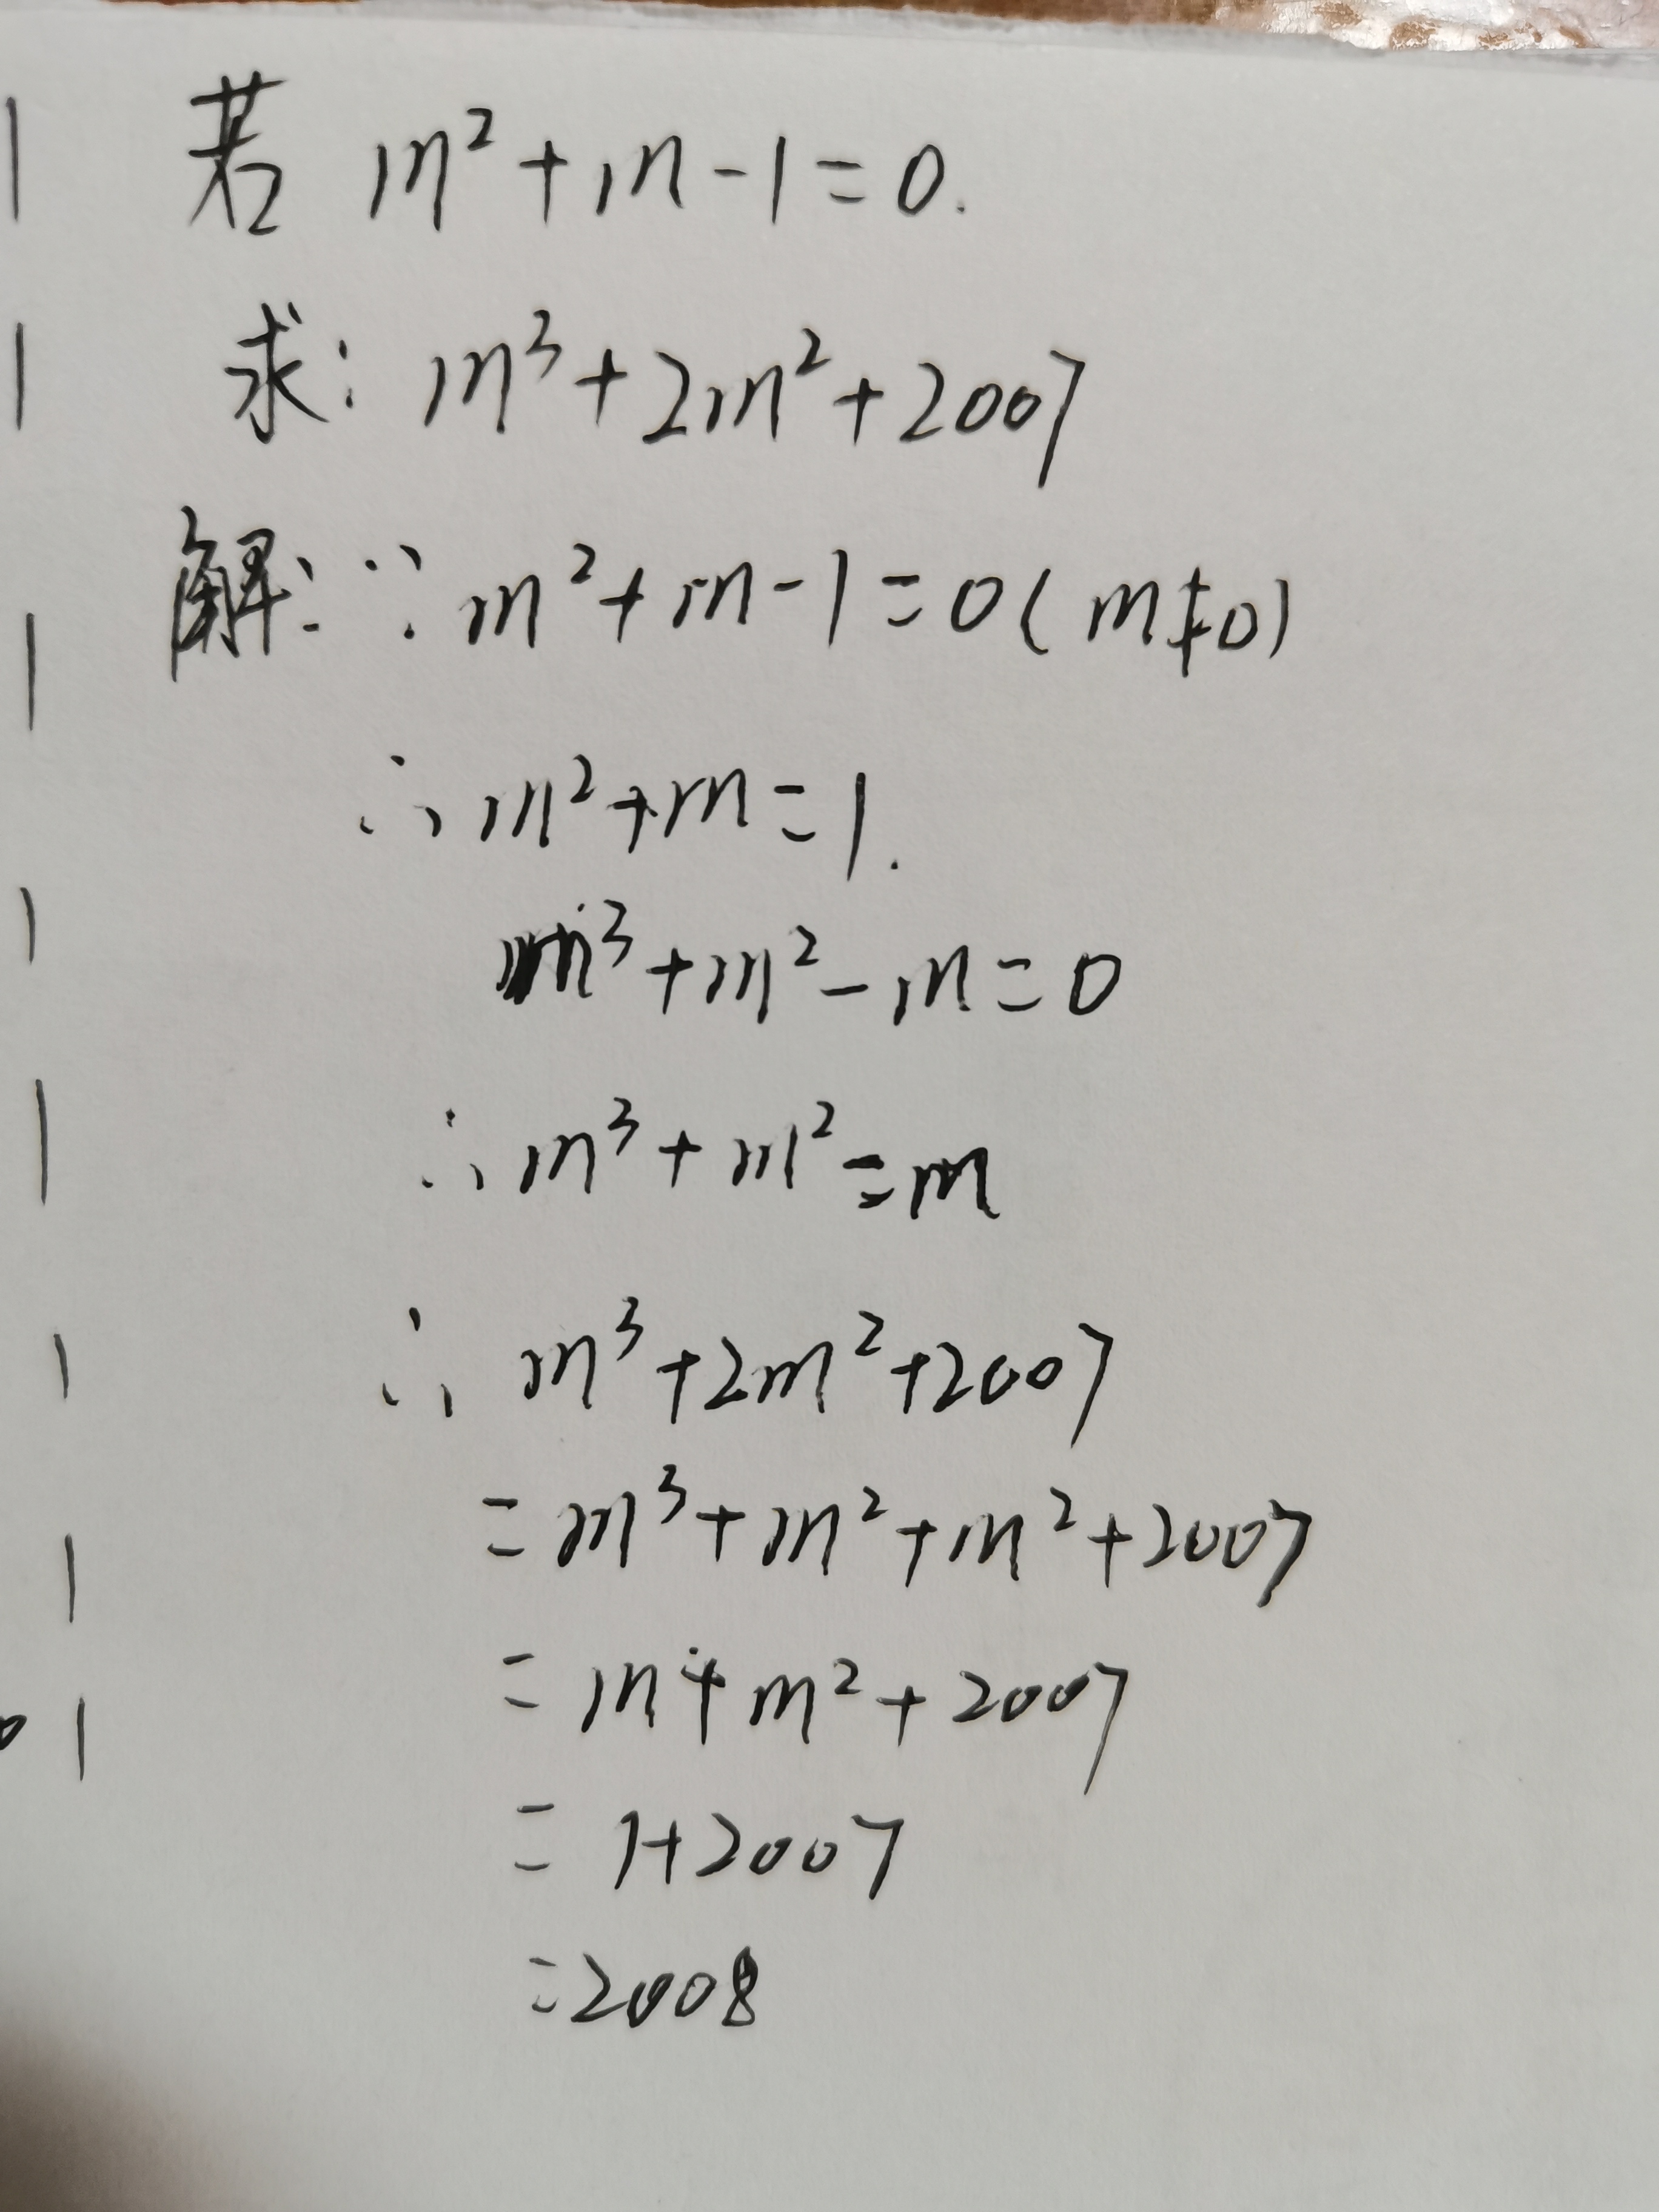 若 m²+m-1=0.
求: m³+2m²+2007
解: ∵ m²+m-1=0(m≠0)
∴ m²+m=1.
m³+m²-m=0
∴ m³+m²=m
∴ m³+2m²+2007
=m³+m²+m²+2007
=m+m²+2007
=1+2007
=2008